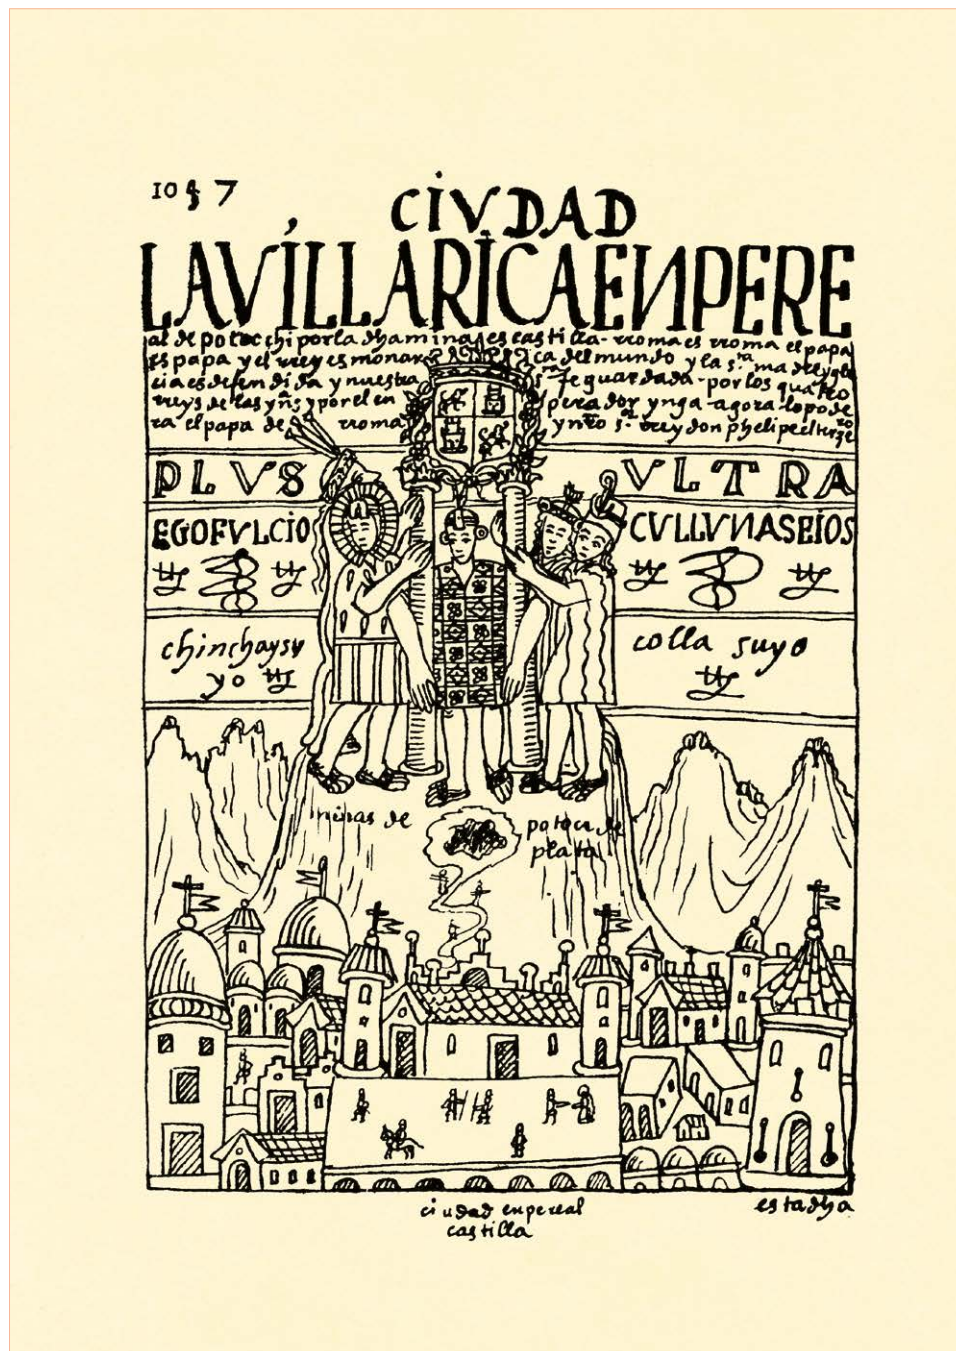 1057
CIVDAD
LA VILLA RICA ENPERE
al de potocchi por la dha mina es castilla - rroma es rroma el papa
es papa y el rrey es monarca del mundo y la s.ta ma de yglecia
es defendida y nuestra s.ta fe guardada - por los quatro
rreys de las yns y por el enperador ynga - agora lo pode
ra el papa de rroma y nro s.r rrey don phelipe el terzero
PLVS VLTRA
EGO FVLCIO CVLLVNAS EIOS
chinchaysu colla suyo
yo
minas de potoci de
plata
ciudad enpereal
castilla
es ta dha